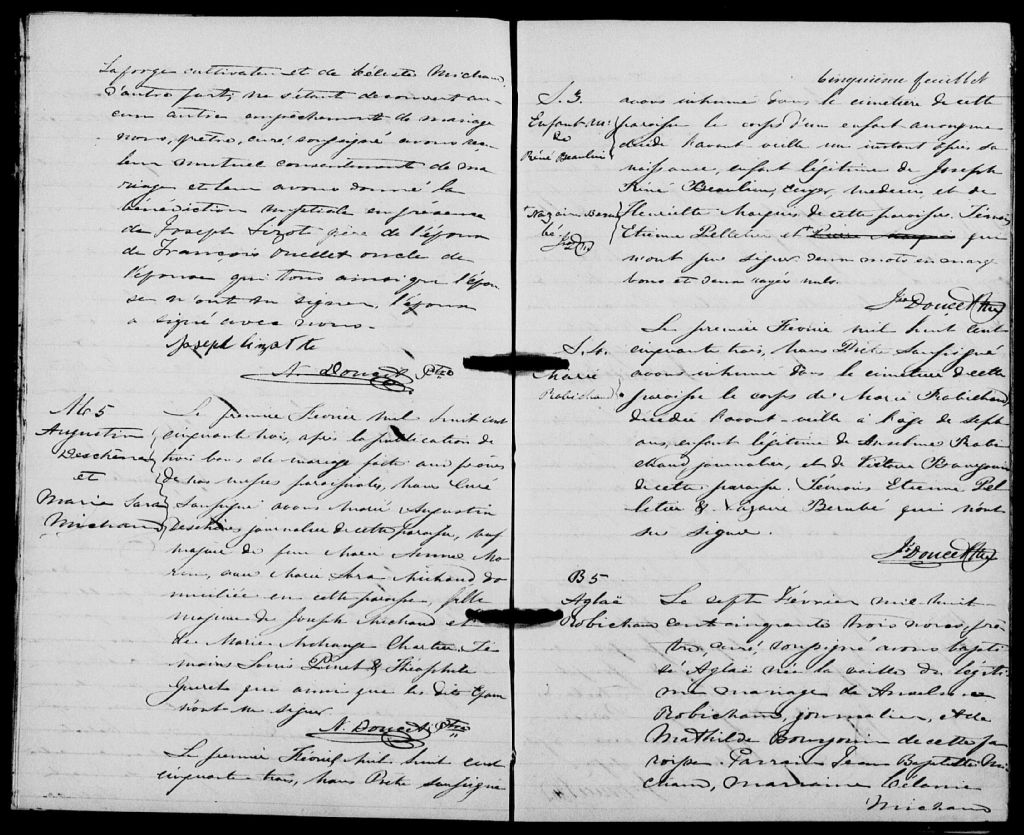 Laforge cultivateur et de Céleste Michaud
d'autre part, ne s'étant découvert au-
cun autre empêchement de mariage
nous, prêtre, curé soussigné avons reçu
leur mutuel consentement de ma
riage et leur avons donné la
bénédiction nuptiale en présence
de Joseph Lizote père de l'époux
de François Ouellet oncle de
l'épouse qui tous ainsi que l'épou
se n'ont su signer, l'époux
a signé avec nous.
Joseph Lizotte
N. Doucet Ptre
M 5
Augustin
Deschênes
et
Marie Sara
Michaud
Le premier Février mil huit cent
cinquante trois, après la publication de
trois bans de mariage faite aux prônes
de nos messes paroissiales, nous Curé
Soussigné avons Marié Augustin
Deschênes journalier de cette paroisse, veuf
majeur de feue Marie Anne Mo
rin, avec Marie Sara Michaud do
miciliée en cette paroisse, fille
majeure de Joseph Michaud et
de Marie Archange Chartier. Té
moins Louis Pinet & Théophile
Gueret qui ainsi que les dits Epoux
n'ont su signer.
N. Doucet Ptre
Le premier Février Mil huit cent
cinquante trois, nous Prêtre soussigné
Cinquième feuillet
S. 3.
Enfant an:
de
Réné Beaulieu
+ Nazaire Beru
bé
Js D
avons inhumé dans le cimetière de cette
paroisse le corps d'un enfant anonyme
décédé l'avant-veille un instant après sa
naissance, enfant légitime de Joseph
Réné Beaulieu, Ecuyer, médecin, et de
Henriette Marquis de cette paroisse. Témoins
Etienne Pelletier et + qui
n'ont su signer. deux mots en marge
bons et deux rayés nuls.
Js Doucet Ptre
S. 4.
Marie
Robichaud
Le premier Février mil huit cent
cinquante trois, nous Prêtre Soussigné
avons inhumé dans le cimetière de cette
paroisse le corps de Marie Robichaud
décédée l'avant-veille à l'âge de sept
ans, enfant légitime de Anselme Robi
chaud journalier, et de Victoire Bourgoin
de cette paroisse. Témoins Etienne Pel
letier & Nazaire Berubé qui n'ont
su signer.
Js Doucet Ptre
B 5
Aglaë
Robichaud
Le sept Février mil huit
cent cinquante trois nous, prê
tre, curé, soussigné avons bapti
sé Aglaë née la veille du légiti
me mariage de Anselme
Robichaud, journalier, et de
Mathilde Bourgoin de cette pa
roisse. Parrain Jean Baptiste Mi
chaud, marraine Célanire
Michaud